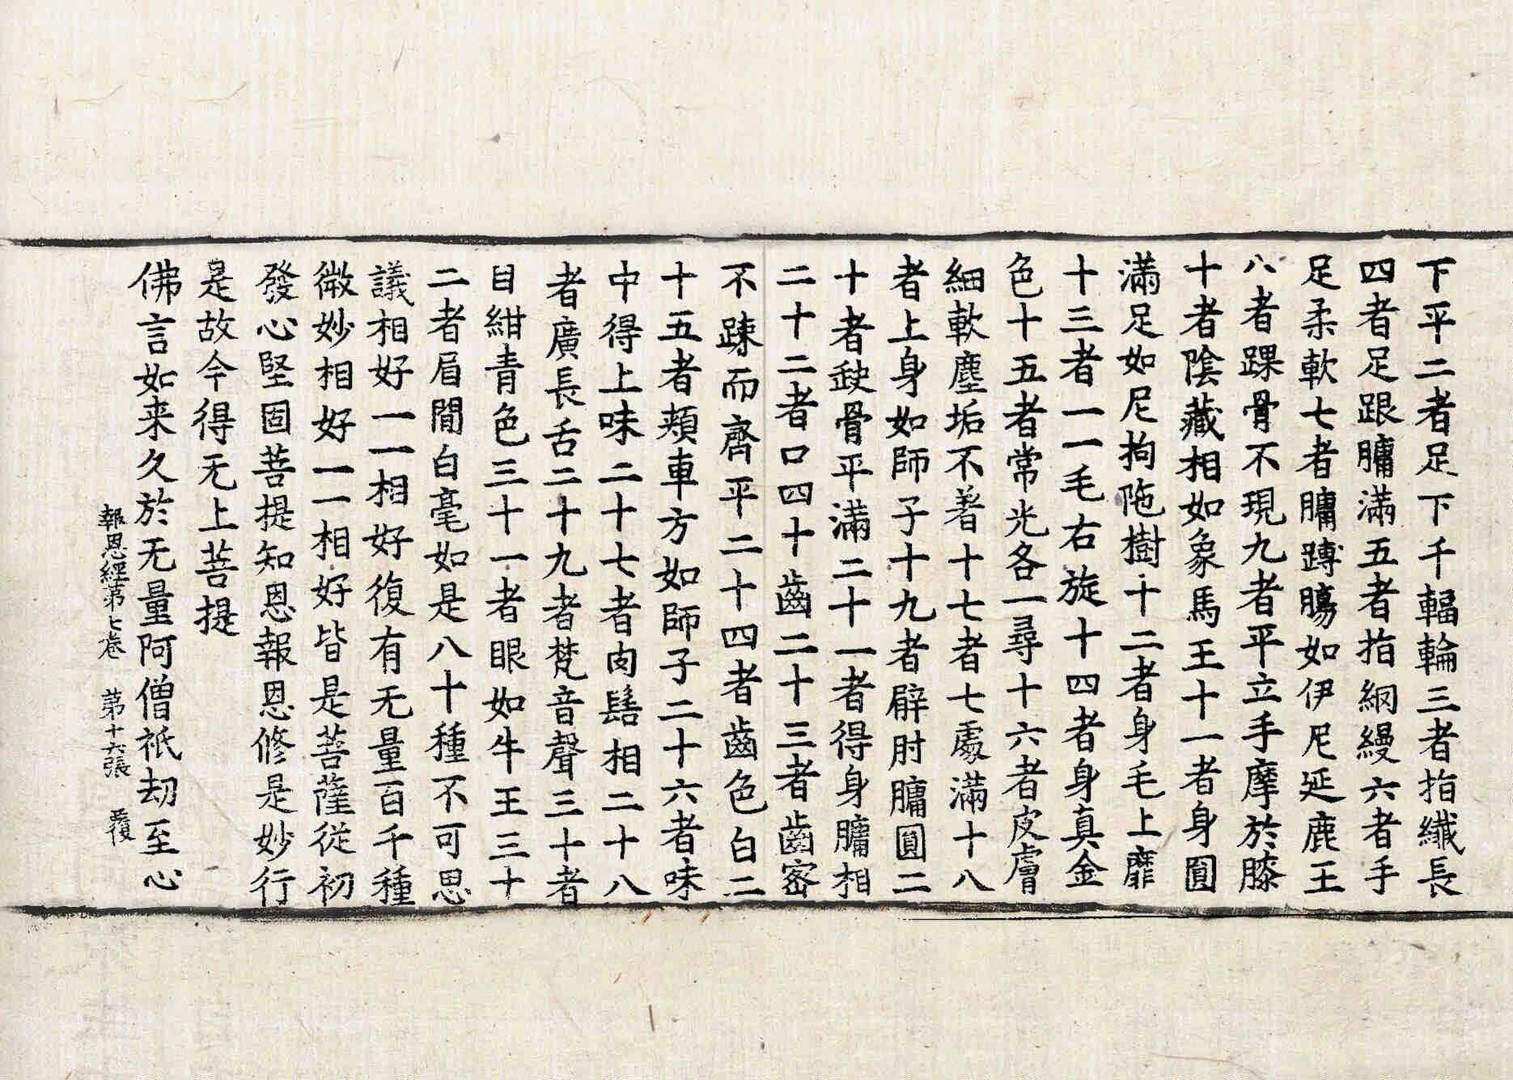 下平二者足下千輻輪三者指纖長
四者足跟𦟛滿五者指網縵六者手
足柔軟七者𦟛䏝膓如伊尼延鹿王
八者踝骨不現九者平立手摩於膝
十者陰藏相如象馬王十一者身圓
滿足如尼拘陁樹十二者身毛上靡
十三者一一毛右旋十四者身真金
色十五者常光各一尋十六者皮膚
細軟塵垢不著十七者七處滿十八
者上身如師子十九者臂肘𦟛圓二
十者缺骨平滿二十一者得身𦟛相
二十二者口四十齒二十三者齒密
不踈而齊平二十四者齒色白二
十五者頰車方如師子二十六者味
中得上味二十七者肉髻相二十八
者廣長舌二十九者梵音聲三十者
目紺青色三十一者眼如牛王三十
二者眉間白毫如是八十種不可思
議相好一一相好復有无量百千種
微妙相好一一相好皆是菩薩從初
發心堅固菩提知恩報恩修是妙行
是故今得无上菩提
佛言如来久於无量阿僧祇劫至心
報恩經第七卷 第十六張 覆